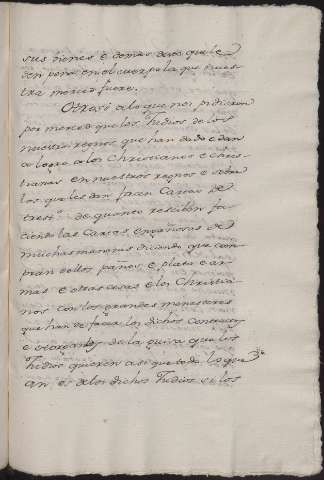 sus bienes e demas desto que le
den pena en el cuerpo la que nues-
tra merced fuere.
Otrosi a lo que nos pidieron
por merced que los Judios de los
nuestros regnos que han dado e dan
a logro a los Christianos e Chris-
tianas en nuestros regnos e sobre
lo que les dan facen Cartas de
tres t.º de quanto resciben fa-
ciendo las Cartas engañosas de
muchas maneras diciendo que com-
pran dellos paños, e plata e ar-
mas e otras cosas e los Christia-
nos con los grandes menesteres
que han de facer los dichos contractos
e otorganlos de la guisa que los
Judios quieren asi que todo lo que
an e de los dichos Judios e los